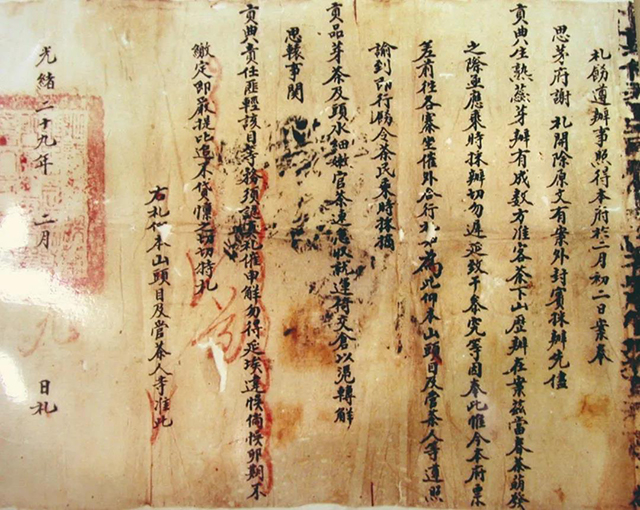 札飭遵辦事照得本府於二月初二日案奉
思茅府謝 札開除原文有案外封實採辦先儘
貢典生熟蕊芽辦有成數方准客茶下山歷辦在案茲當春茶萌發
之際亟應乘時採辦切勿遲延致干參究等因奉此惟今本府票
差前往各寨坐催外合行札知為此仰本山頭目及管茶人等遵照
諭到即行傳令茶民乘時採摘
貢品芽茶及頭水細嫩官茶速急收就運倚交倉以凭轉解
思轅事関
貢典責任匪輕該目等務須認真札催申解勿得延埃違悮倘悮卯期不
繳定即嚴提比追不貸懍之切切特札
右札仰本山頭目及管茶人等准此
光緒二十九年 二月 日札